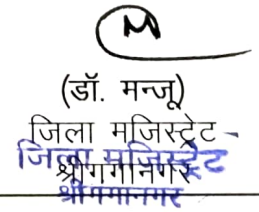 M
(डॉ. मन्जू)
जिला मजिस्ट्रेट
श्रीगंगानगर
जिला मजिस्ट्रेट
श्रीगंगानगर